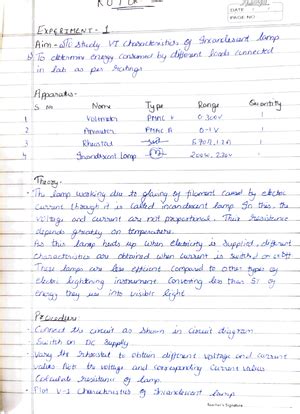 DATE
PAGE NO.
EXPERIMENT - 1
Aim - a) To study VI characteristics of Incandescent lamp
b) To determine energy consumed by different loads connected
in lab as per ratings
Apparatus -
S. no Name Type Range Quantity
1 Voltmeter PMMC V 0-300V 1
2 Ammeter PMMC A 0-1 1
3 Rheostat 570Ω, 1.2A 1
4 Incandescent lamp 200W, 230V 1
Theory -
• The lamp working due to glowing of filament caused by electric
current through it is called incandescent lamp. In this, the
voltage and current are not proportional. Their resistance
depends greatly on temperature.
As this lamp heats up when electricity is supplied, different
characteristics are obtained when current is switched on or off
These lamps are less efficient compared to other types of
electric lightning instrument converting less than 5% of
energy they use into visible light
Procedure -
• Connect the circuit as shown in circuit diagram
• Switch on DC supply
• Vary the rheostat to obtain different voltage and current
values Note the voltage and corresponding current values
• Calculate resistance of lamp.
• Plot V-I characteristics of Incandescent lamp
Teacher's Signature